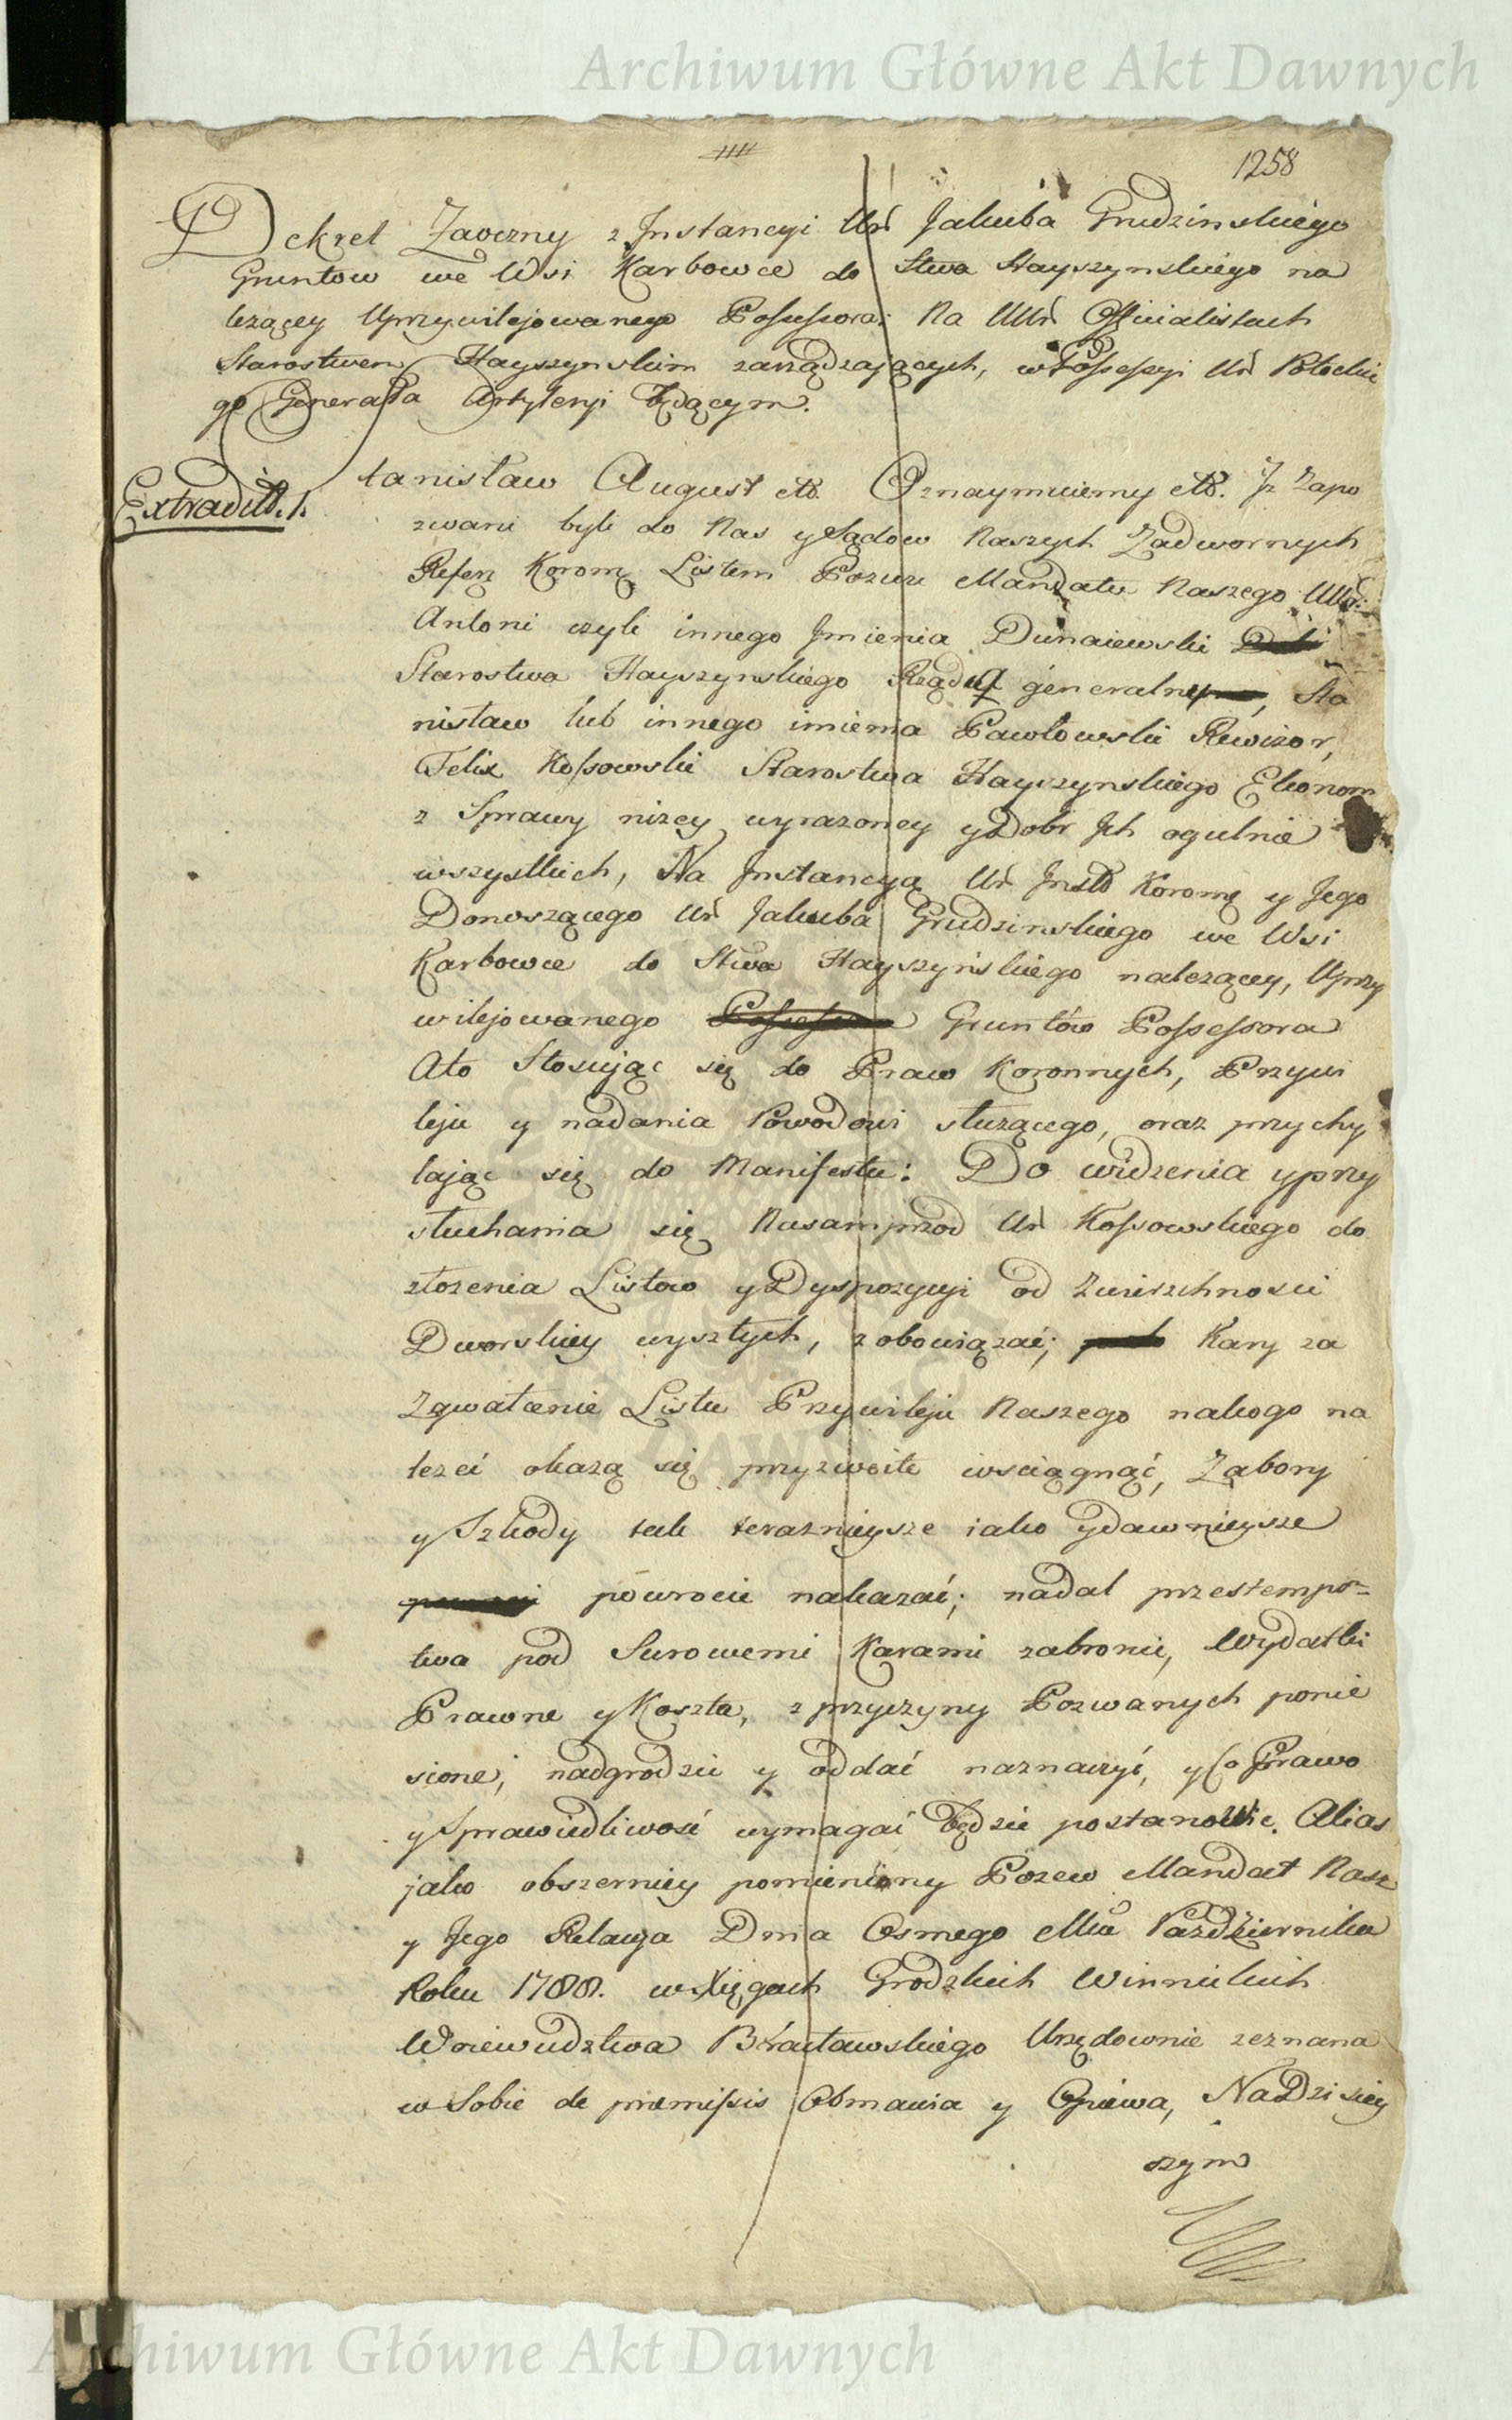 Archiwum Główne Akt Dawnych
1258
Dekret Zaoczny z Instancyi Ur Jakuba Grudzinskiego
Gruntow we Wsi Karbowce do Stwa Hayszynskiego na
lezącey Uprzywilejowanego Possessora: Na UUr Officialistach
Starostwem Hayszynskim zarządzaiących, w Possessyi Ur Potockie
go Generała Artyleryi będącym.
Extradit.
Stanisław August etc. Oznaymuiemy etc. Iz Zapo
zwani byli do Nas y Sądow Naszych Zadwornych
Refer Koronn Listem Pozwu Mandatu Naszego UUr:
Antoni czyli innego Imienia Dunaiewski
Starostwa Hayszynskiego Rządca generalny, Sta
nisław lub innego imienia Pawłowski Rewizor,
Felix Kossowski Starostwa Hayszynskiego Ekonom
z Sprawy nizey wyrazoney y Dobr Ich ogulnie
wszystkich, Na Instancyą Ur Inst Koronn y Jego
Donoszącego Ur Jakuba Grudzinskiego we Wsi
Karbowce do Stwa Hayszyńskiego nalezącey, Uprzy
wilejowanego Possessora Gruntów Possessora
Ato Stosując się do Praw Koronnych, Przywi
leju y nadania Powodowi służącego, oraz przychy
lając się do Manifestu: Do widzenia y przy
słuchania się Nasamprzod Ur Kossowskiego do
złozenia Listow y Dyspozycyi od Zwierzchnosci
Dworskiey wyszłych, zobowiązać; Kary za
Zgwałcenie Listu Przywileju Naszego nakogo na
lezeć okazą się przyzwoite wsciągnąć, Zabory
y Szkody tak teraznieysze iako y dawnieysze
powrocic nakazać; nadal przestemps-
twa pod Surowemi Karami zabronic, Wydatki
Prawne y Koszta, z przyczyny Pozwanych ponie
sione, nadgrodzic y oddać naznaczyć, y Co Prawo
y Sprawiedliwosć wymagać będzie postanowic. Alias
jako obszerniey pomieniony Pozew Mandat Nasz
y Jego Relacya Dnia Osmego Mca Pazdziernika
Roku 1788. w Xięgach Grodzkich Winnickich
Woiewudztwa Bracławskiego Urzędownie zeznana
w Sobie de præmissis Obmawia y Opiewa, Na Dzisiey
szym
Archiwum Główne Akt Dawnych